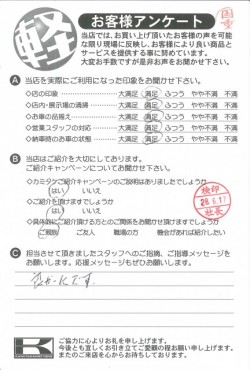 軽
お客様アンケート
当店では、お買い上げ頂いたお客様の声を可能
な限り現場に反映し、お客様により良い商品と
サービスを提供する事に努めています。
大変お手数ですが是非お声をお聞かせ下さい。
A 当店を実際にご利用になった印象をお聞かせ下さい。
◇店の印象 大満足 満足 ふつう やや不満 不満
◇店内・展示場の清掃 大満足 満足 ふつう やや不満 不満
◇お車の品揃え 大満足 満足 ふつう やや不満 不満
◇営業スタッフの対応 大満足 満足 ふつう やや不満 不満
◇納車時のお車の状態 大満足 満足 ふつう やや不満 不満
B 当店はご紹介を大切にしております。
ご紹介キャンペーンについてお聞かせ下さい。
◇カミタケご紹介キャンペーンのご説明はありましたでしょうか
はい いいえ
◇ご紹介を頂けますでしょうか
はい いいえ
◇具体的にご紹介頂ける方とのご関係をお聞かせ頂けますでしょうか
ご親戚 ご友人 職場の方 機会があれば紹介したい
検印
28.6.17
社長
C 担当させて頂きましたスタッフへのご指摘、ご指導メッセージを
お願いします。応援メッセージもぜひお願いします。
です。
K
ご協力に心よりお礼を申し上げます。
今後とも宜しくお引き立てご愛顧の程お願い申し上げます。
またのご来店を心からお待ちしております。